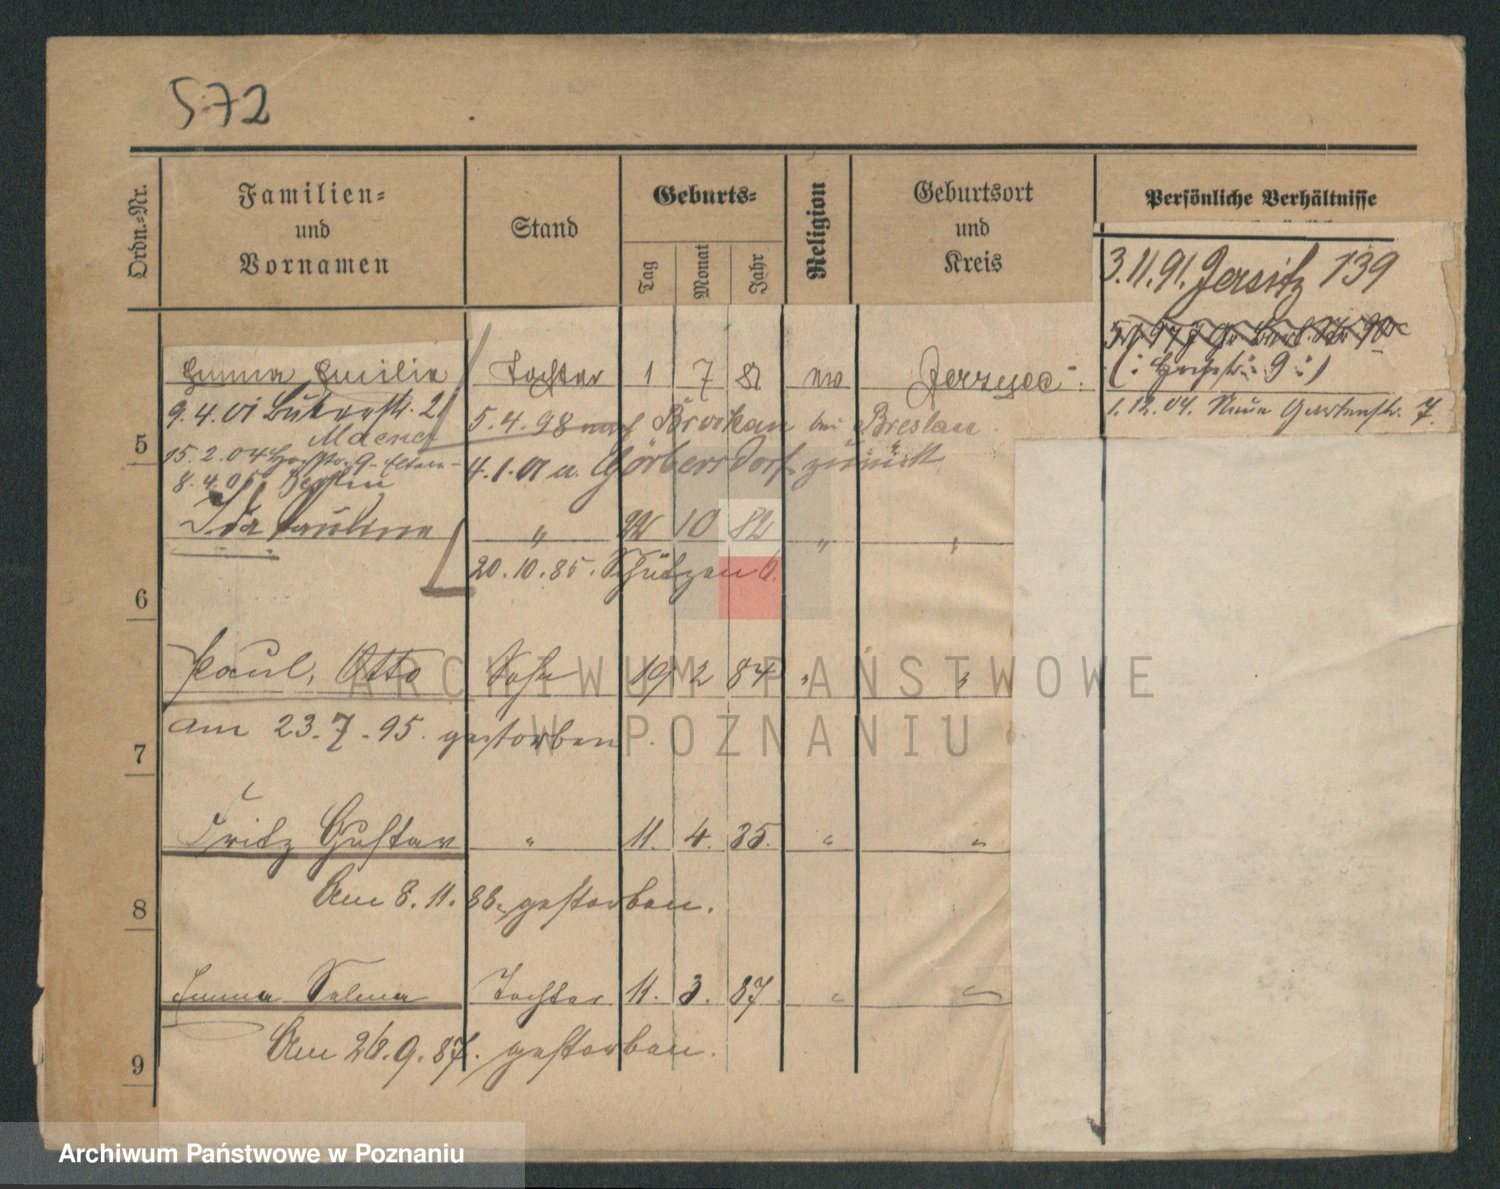 572
Ordn.-Nr.
Familien-
und
Vornamen
Stand
Geburts-
Tag
Monat
Jahr
Religion
Geburtsort
und
Kreis
Persönliche Verhältnisse
3.11.91. Jersitz 139
1.12.04. Neue Gartenstr. 7.
5
Emma Emilie Tochter 1 7 81 ew Jerzyce
9.4.01 2.
5.4.98 nach Brockau bei Breslau.
15.2.04 9
4.1.01 u. Görbersdorf zurück
8.4.05 Berlin
6
Ida Pauline " 22 10 82 " "
20.10.85. Schützen 6.
7
Paul, Otto Sohn 19 2 84 " "
am 23.7.95. gestorben.
8
Fritz Gustav " 11. 4. 85. " "
Am 8.11.86. gestorben.
9
Emma Selma Tochter 11. 3. 87. " "
Am 26.9.87. gestorben.
ARCHIWUM PAŃSTWOWE
W POZNANIU
Archiwum Państwowe w Poznaniu